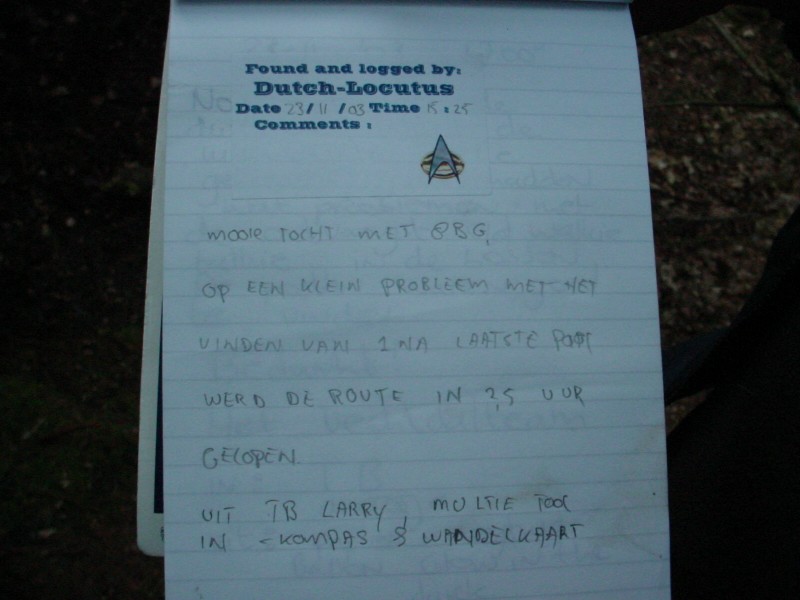 Found and logged by:
Dutch-Locutus
Date 23/11/03 Time 15:25
Comments :
MOOIE TOCHT MET
OP EEN KLEIN PROBLEEM MET HET
VINDEN VAN 1 NA LAATSTE
WERD DE ROUTE IN 2,5 UUR
GELOPEN.
UIT TB LARRY, MULTIE TOOL
IN - KOMPAS & WANDELKAART